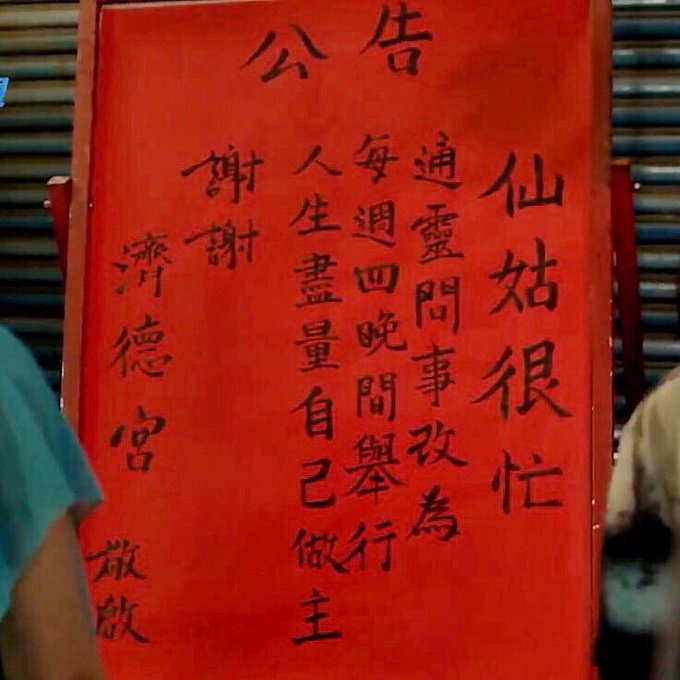 公告
仙姑很忙
通靈問事改為
每週四晚間舉行
人生盡量自己做主
謝謝
濟德宮 敬啟